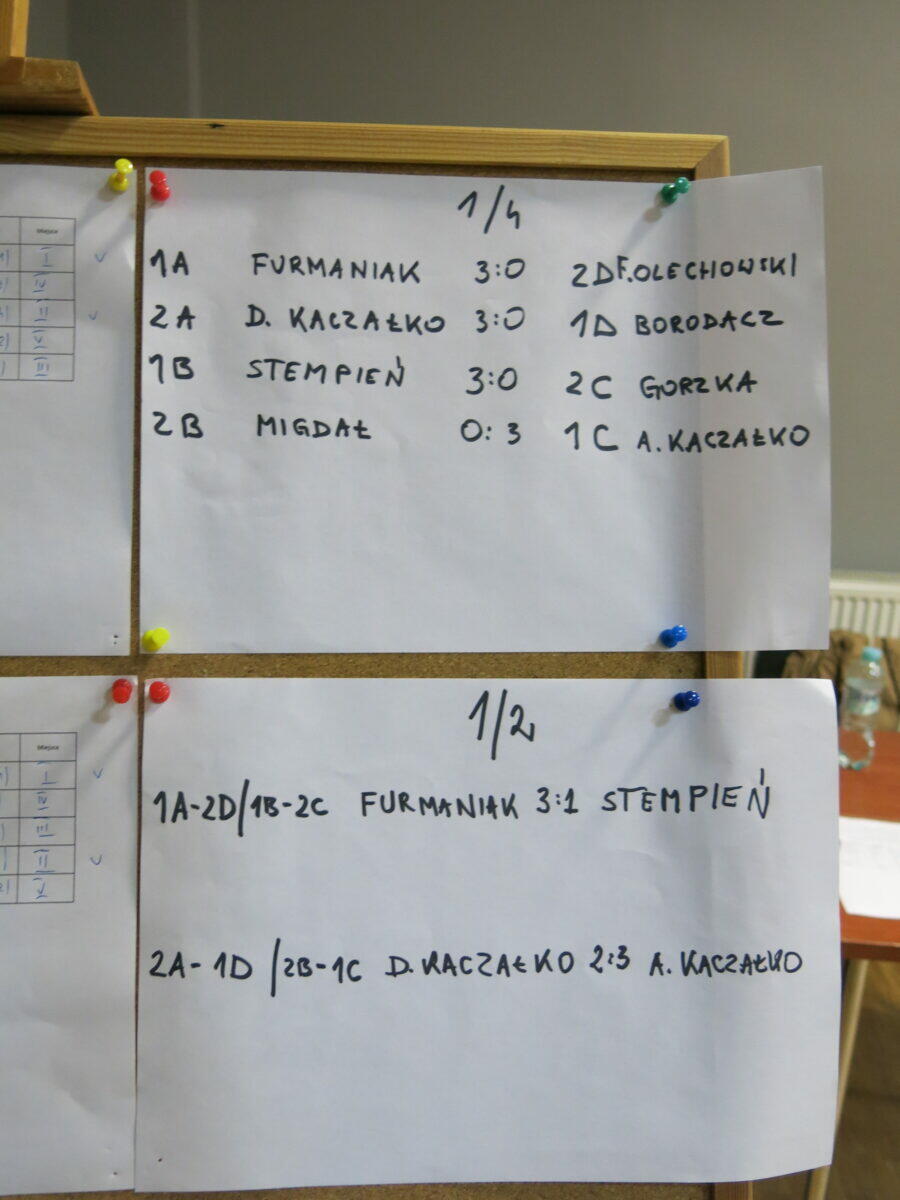 1/4
1A FURMANIAK 3:0 2D F.OLECHOWSKI
2A D. KACZAŁKO 3:0 1D BORODACZ
1B STEMPIEŃ 3:0 2C GORZKA
2B MIGDAŁ 0:3 1C A. KACZAŁKO
1/2
1A-2D/1B-2C FURMANIAK 3:1 STEMPIEŃ
2A-1D/2B-1C D. KACZAŁKO 2:3 A. KACZAŁKO
Miejsce
Miejsce